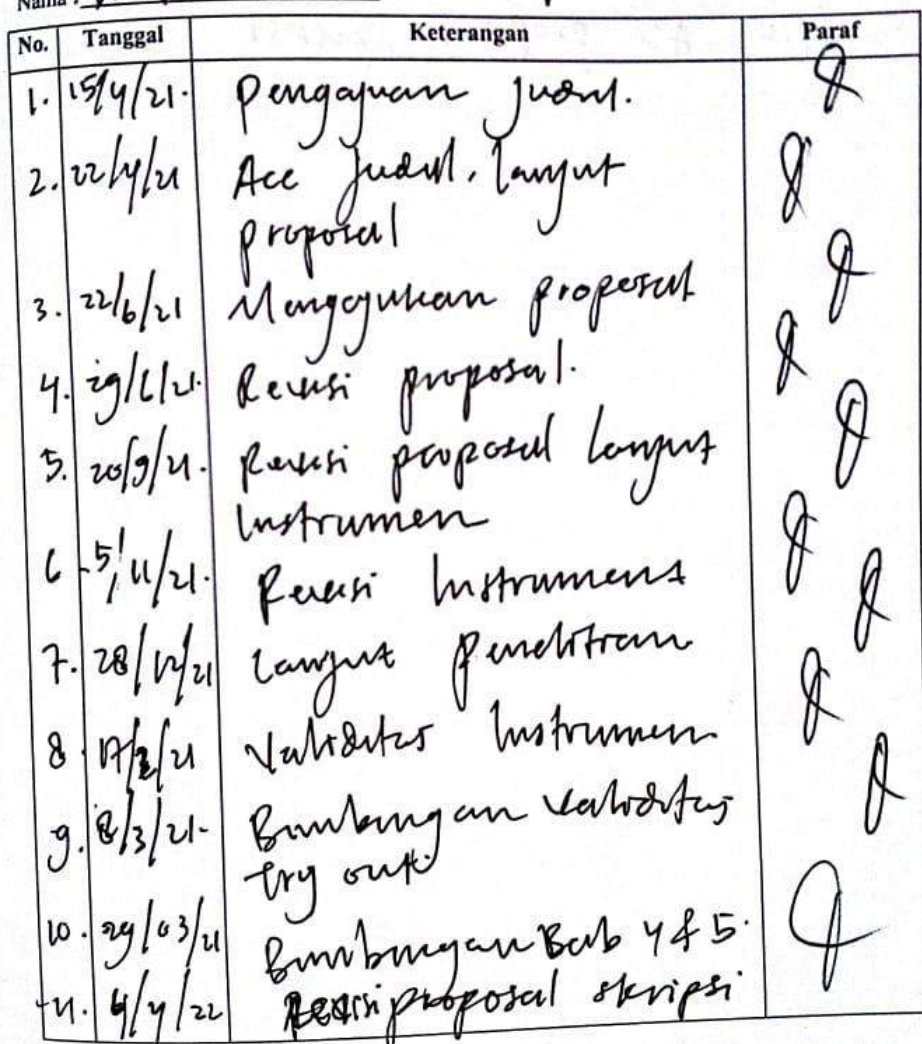 Nama :
No. Tanggal Keterangan Paraf
1. 15/4/21. Pengajuan judul.
2. 22/4/21 Acc judul, lanjut
proposal
3. 22/6/21 Mengajukan proposal
4. 29/6/21. Revisi proposal.
5. 20/9/21. Revisi proposal lanjut
Instrumen
6 5/11/21. Revisi Instrumen
7. 28/12/21 Lanjut penelitian
8 17/2/21 Validitas Instrumen
9. 8/3/21- Bimbingan validitas
try out.
10. 29/03/21 Bimbingan Bab 4 & 5.
11. 4/4/22 Revisi proposal skripsi